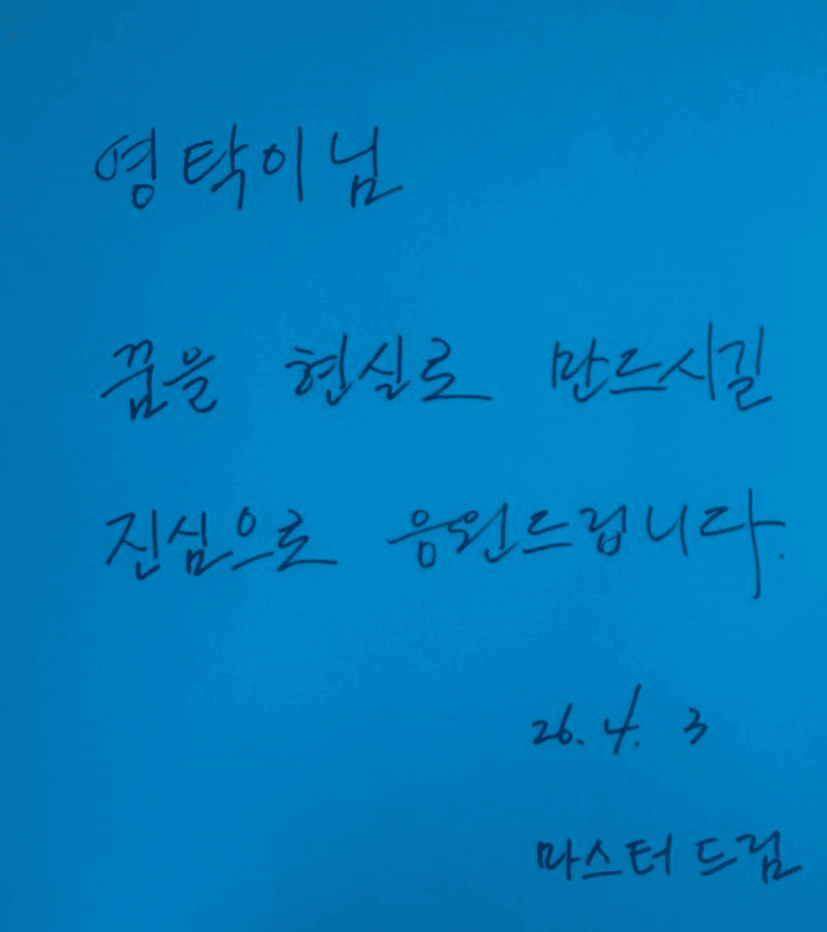 영탁이님
꿈을 현실로 만드시길
진심으로 응원드립니다.
26. 4. 3
마스터 드림